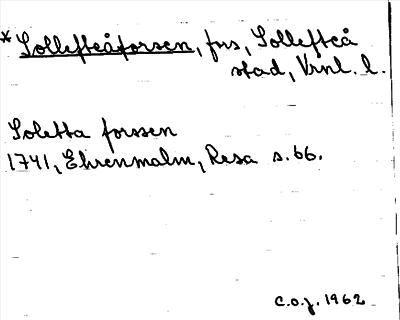 *Sollefteåforsen, fors, Sollefteå
stad, Vrnl. l.
Soletta forssen
1741, Ehrenmalm, Resa s. 66.
C.o.j. 1962